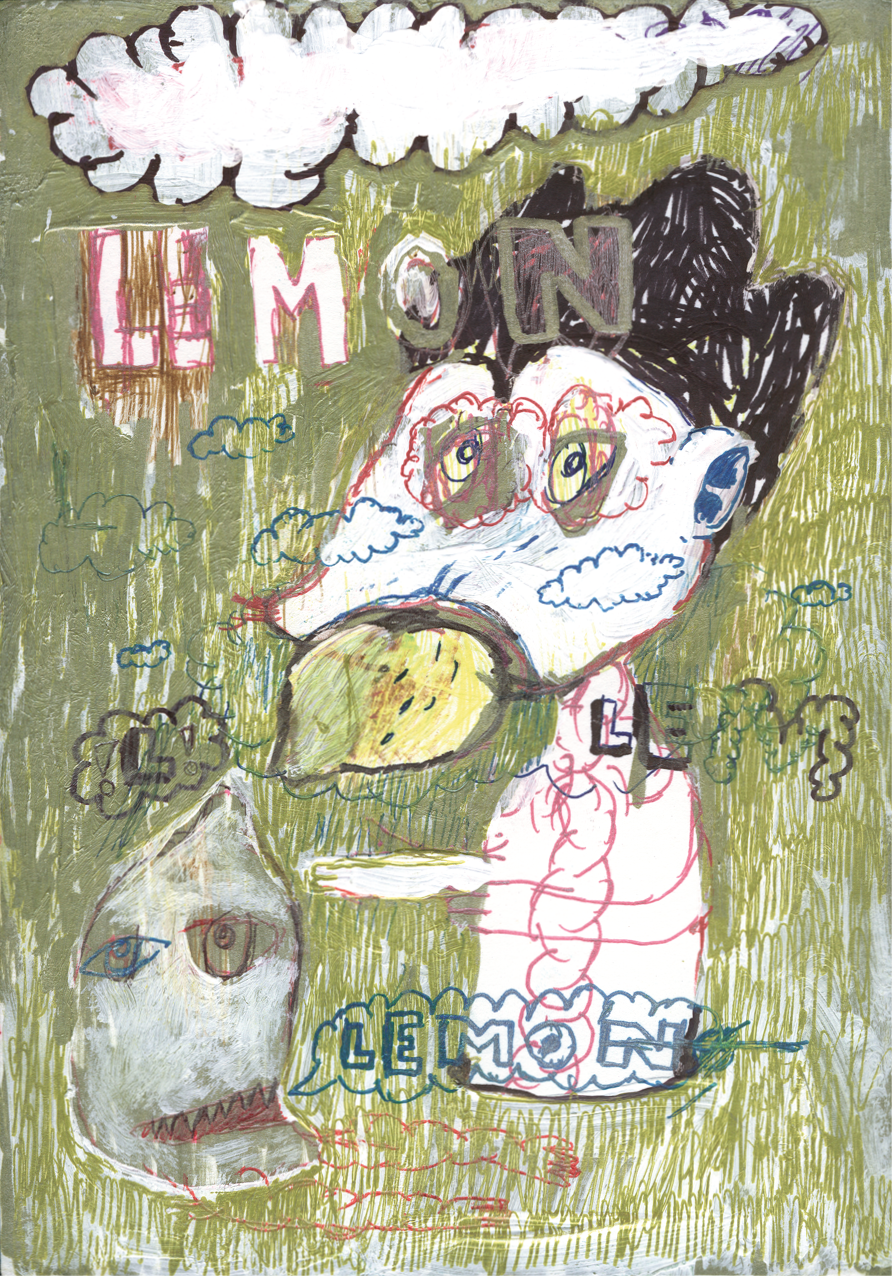 LEMON
LE
L
LEMON